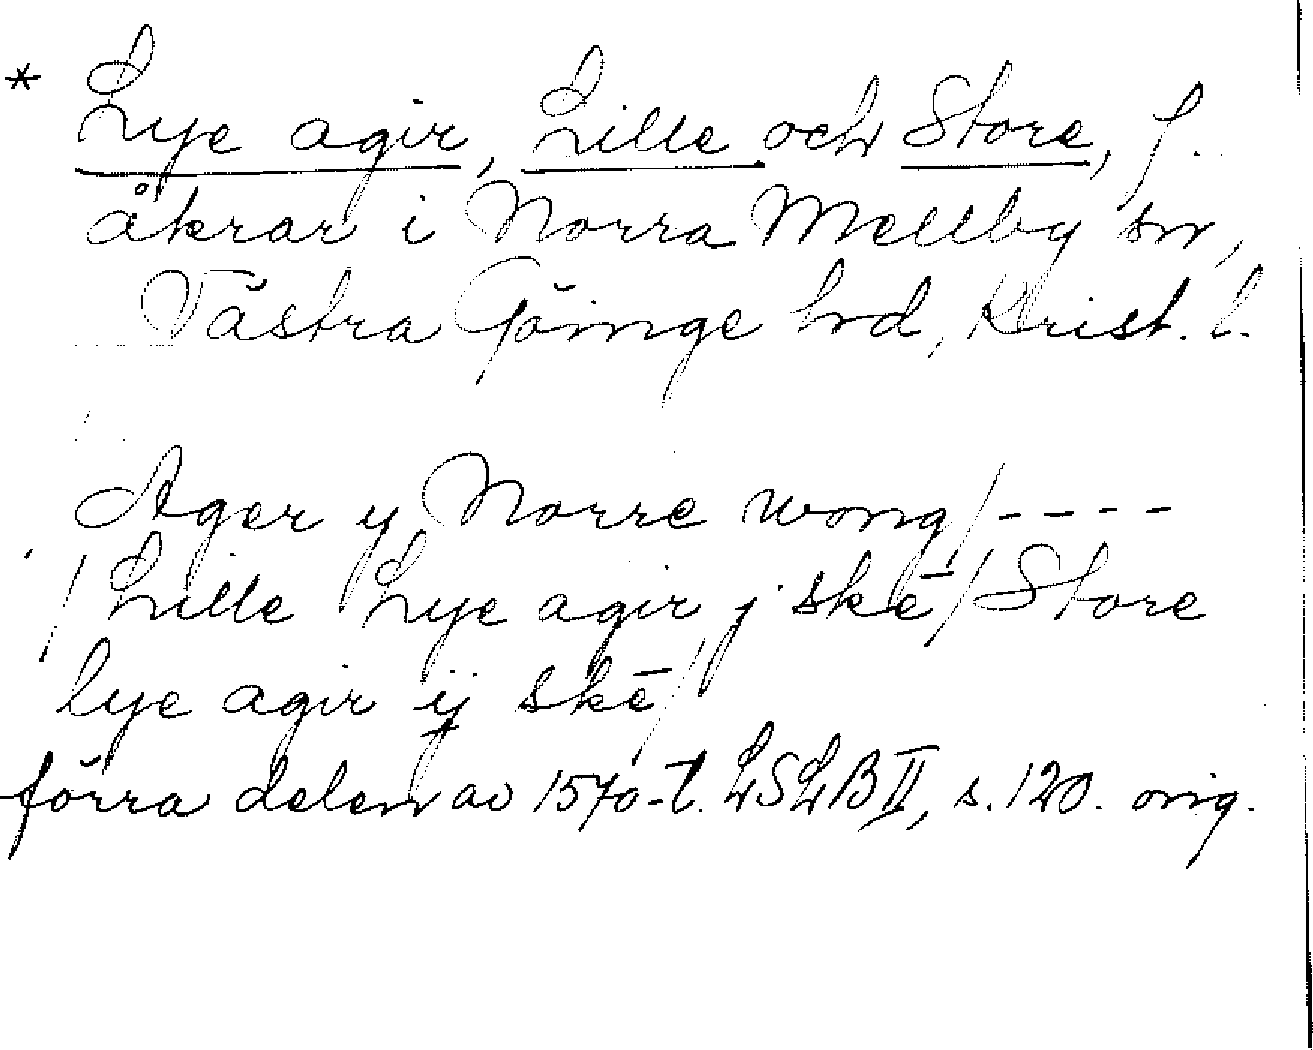 * Lye agir, Lille och Store, f.
åkrar i Norra Mellby sn,
Västra Göinge hd, Krist. l.
Ager y Norre wong/----
/Lille Lye agir j skē/Store
lye agir ij skē/
förra delen av 1570-t. LSLB II, s. 120. orig.